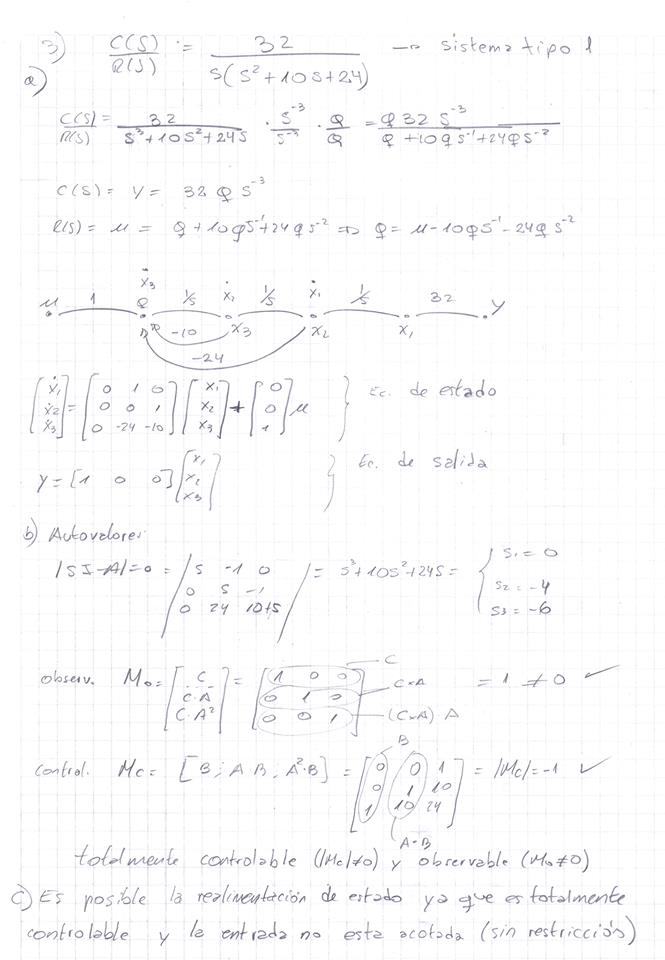 3) C(S)/R(S) = 32 / S(S²+10S+24) → sistema tipo 1
a)
C(S)/R(S) = 32 / S³+10S²+24S · S⁻³/S⁻³ · Q/Q = Q 32 S⁻³ / Q+10QS⁻¹+24QS⁻²
C(S) = Y = 32 Q S⁻³
R(S) = μ = Q+10QS⁻¹+24QS⁻² ⇒ Q = μ-10QS⁻¹-24QS⁻²
μ 1 Ẋ₃ Q 1/S Ẋ₂ X₃ 1/S Ẋ₁ X₂ 1/S X₁ 32 Y
-10
-24
[Ẋ₁ Ẋ₂ Ẋ₃] = [0 1 0; 0 0 1; 0 -24 -10] [X₁ X₂ X₃] + [0 0 1] μ } Ec. de estado
Y = [1 0 0] [X₁ X₂ X₃] } Ec. de salida
b) Autovalores:
|SI-A|=0 = |S -1 0; 0 S -1; 0 24 10+S| = S³+10S²+24S = { S₁ = 0 S₂ = -4 S₃ = -6
observ. Mo = [C; C·A; C·A²] = [1 0 0; 0 1 0; 0 0 1] = 1 ≠ 0 ✓
C
C×A
(C×A) A
control. Mc = [B; A·B; A²·B] = [0 0 1; 0 1 10; 1 10 24] = |Mc|=-1 ✓
B
A·B
totalmente controlable (|Mc|≠0) y observable (Mo≠0)
c) Es posible la realimentación de estado ya que es totalmente
controlable y la entrada no esta acotada (sin restricción)